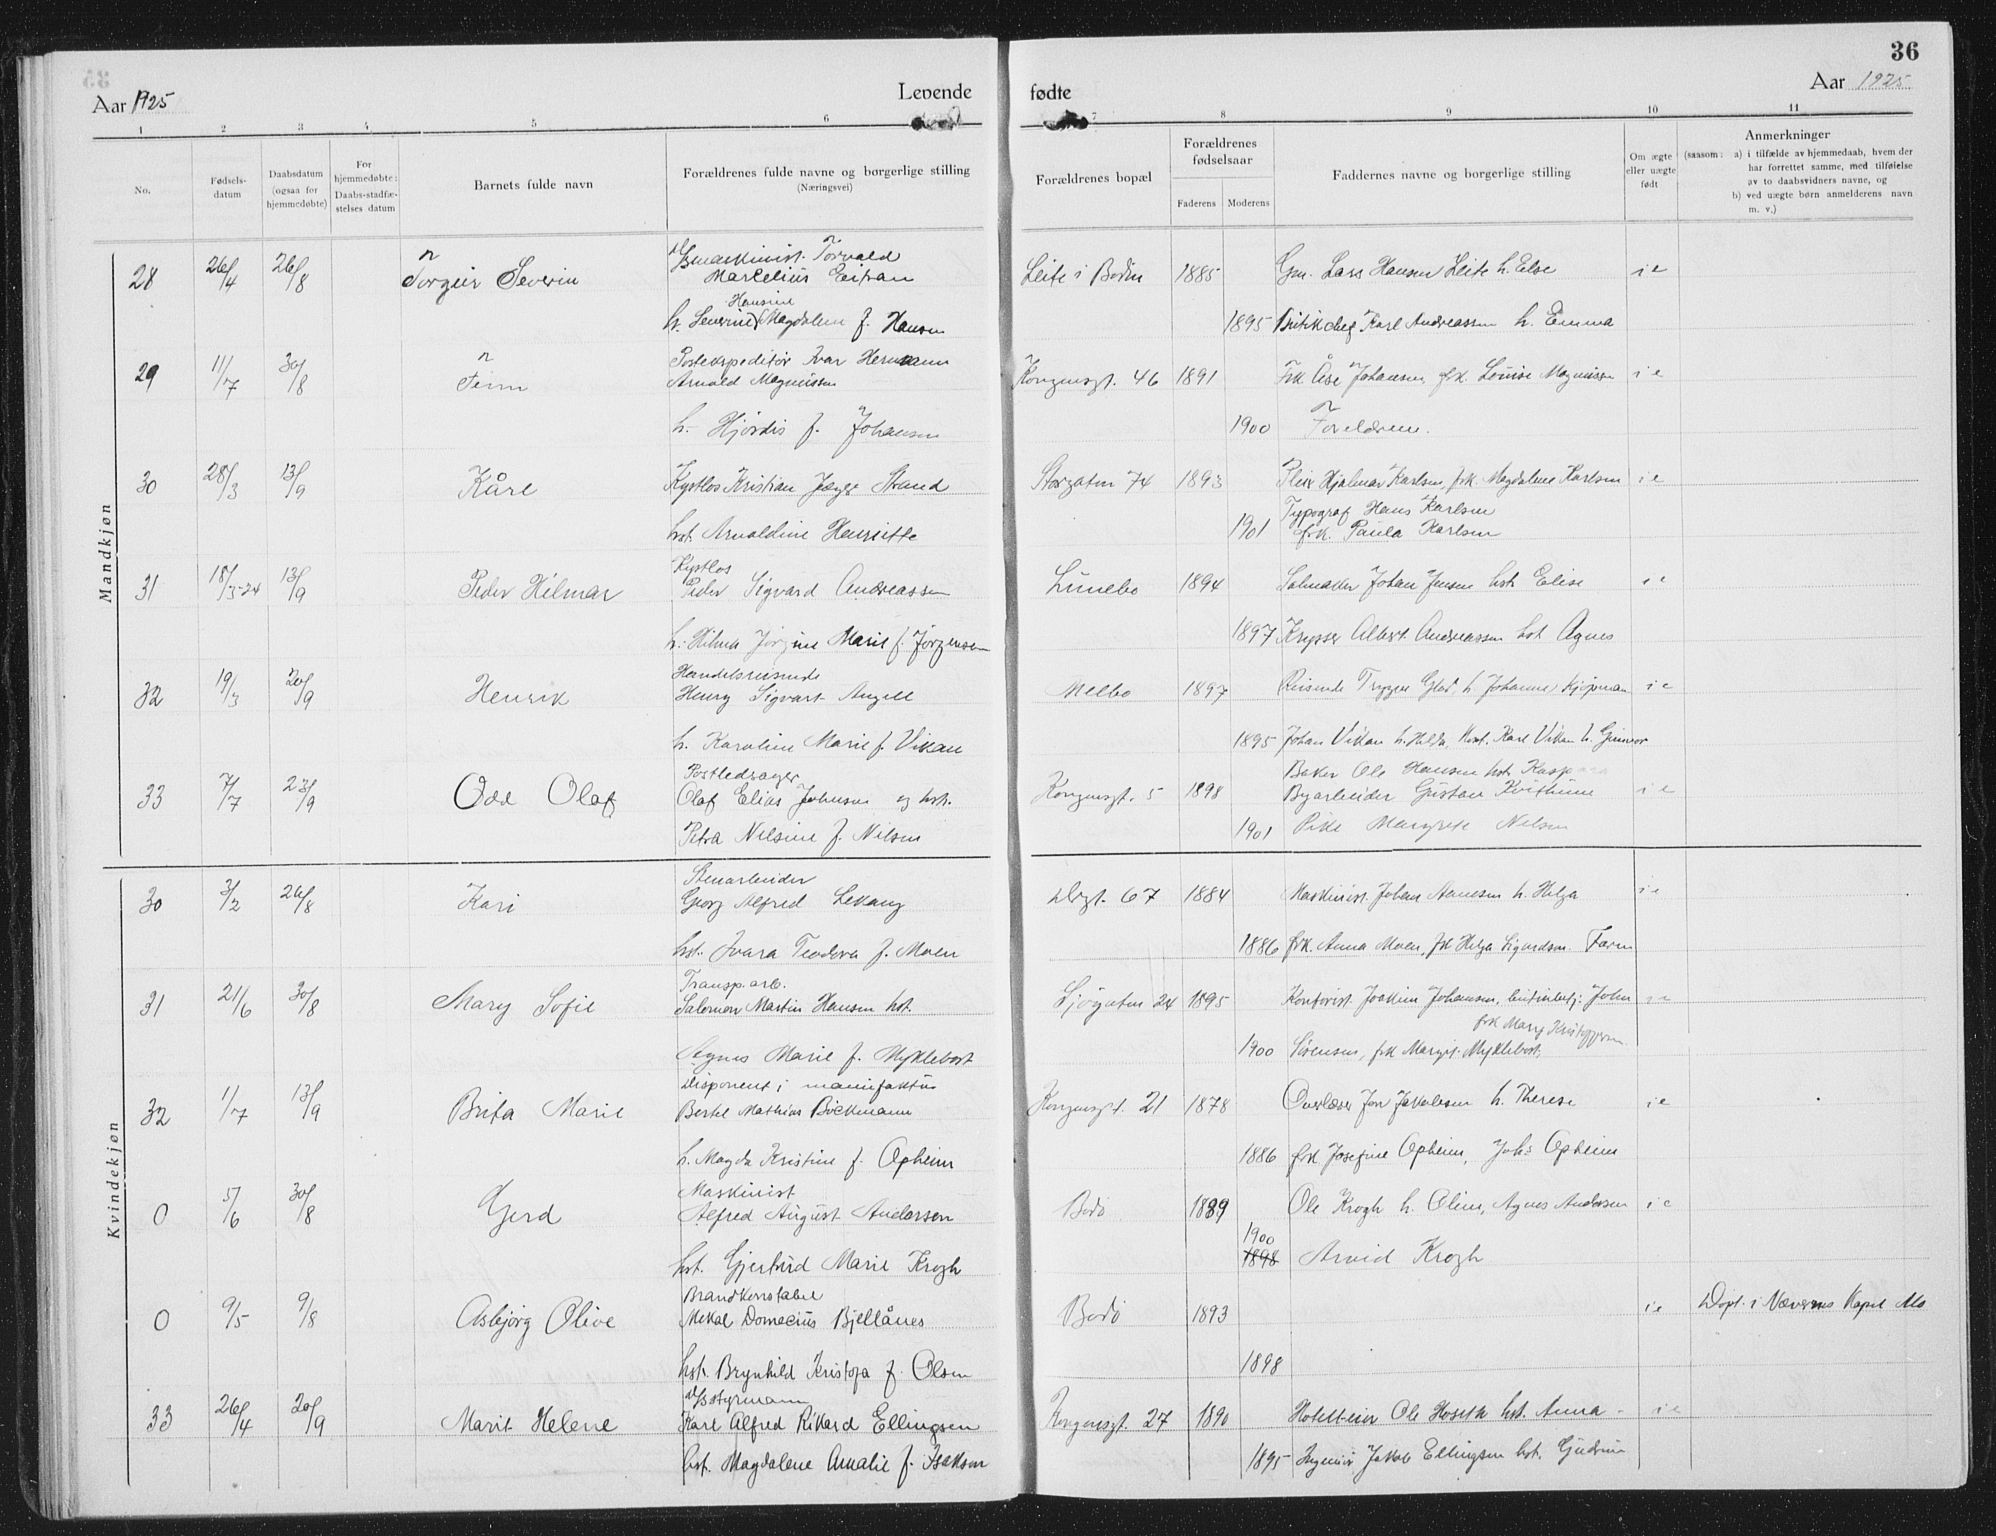 36
Aar 1925
Levende
fødte
Aar 1925
1 2 3 4 5 6 7 8 9 10 11
No.
Fødsels-
datum
Daabsdatum
(ogsaa for
hjemmedøbte)
For
hjemmedøbte:
Daabs-stadfæ-
stelses datum
Barnets fulde navn
Forældrenes fulde navne og borgerlige stilling
(Næringsvei)
Forældrenes bopæl
Forældrenes
fødselsaar
Faderens
Moderens
Faddernes navne og borgerlige stilling
Om ægte
eller uægte
født
Anmerkninger
(saasom: a) i tilfælde av hjemmedaab, hvem der
har forrettet samme, med tilføielse
av to daabsvidners navne, og
b) ved uægte børn anmelderens navn
m. v.)
Mandkjøn
28 26/4 26/8 Torgeir Severin
Torvald
Marcelius Eitran
Hansine
h. Severine Magdalene f. Hansen
Leite i Bodin 1885 Gm. Lars Hansen Leite h. Else i e
1895 Butikchef Karl Andreassen h. Emma
29 11/7 30/8 Finn
Postekspeditør Ivar Hermann
Arnold Magnussen
h. Hjørdis f. Johansen
Kongensgt. 46 1891 Frk Åse Johansen, frk. Louise Magnussen i e
1900 Forældrene.
30 28/3 13/9 Kåre
Kystlos Kristian Jæger Strand
hst. Arnoldine Henriette
Storgaten 74 1893 Hjalmar Karlsen, frk. Magdalene Karlsen i e
Typograf Hans Karlsen
1901 frk. Paula Karlsen
31 18/3-24 13/9 Peder Hilmar
Kystlos
Peder Sigvard Andreassen
h. Hilma Jørgine Marie f. Jørgensen
Lunebo 1894 Salmaker Johan Jensen hst. Elise i e
1897 Albert Andreassen hst. Agnes
32 19/3 20/9 Henrik
Handelsreisende
Henry Sigvart Angell
h. Karoline Marie f. Vikan
Melbo 1897 Reisende Trygve Glad h. Johanne, Kjøpman i e
1895 Johan Vikan h. Hilda, Karl Vikan h. Gunvor
33 7/7 23/9 Odd Olaf
Postledsager
Olaf Elias Johnsen og hst.
Petra Nelsine f. Nilsen
Kongensgt. 5 1898 Baker Ole Hansen hst. Kaspara
Byarbeider Gustav i e
1901 Pike Margrete Nelsen
Kvindekjøn
30 3/2 26/8 Kari
Stenarbeider
Georg Alfred Lekang
hst. Ivara Teodora f. Moen
Drgt. 67 1884 Maskinist. Johan Aanesen h. Helga i e
1886 frk. Anna Moen, frk Helga Sigurdson. Farm
31 21/6 30/8 Mary Sofie
Transp.arb.
Salomon Martin Hansen hst.
Agnes Marie f. Myklebost
Sjøgaten 24 1895 Kontorist. Joakim Johansen, John i e
frk Mary Kristoffersen
1900 Sørensen, frk Margit Myklebost.
32 1/7 13/9 Brita Marie
Disponent i manufaktur
Bertel Mathias Böckmann
h. Magda Kristine f. Opheim
Kongensgt. 21 1878 Overlærer Jon Jakobsen h. Therese i e
1886 frk Josefine Opheim, Johs Opheim
0 5/6 30/8 Gerd
Maskinist
Alfred August Andersen
hst. Gjertrud Marie Krogh
Bodö 1889 Ole Krogh h. Oline, Agnes Andersen i e
1900
1898 Arvid Krogh
0 9/5 9/8 Asbjörg Olive
Brandkonstabel
Mikal Domecius Bjellånes
hst. Brynhild Kristofa f. Olsen
Bodö 1893 i e Döpt. i Nævernes Kapel Mo
1898
33 26/4 20/9 Marit Helene
D/S styrmann
Karl Alfred Rikard Ellingsen
hst. Magdalene Amalie f. Isaksen
Kongensgt. 27 1890 Hotelleier Ole Hoseth hst. Anna i e
1895 Ingeniør Jakob Ellingsen hst. Gudrun